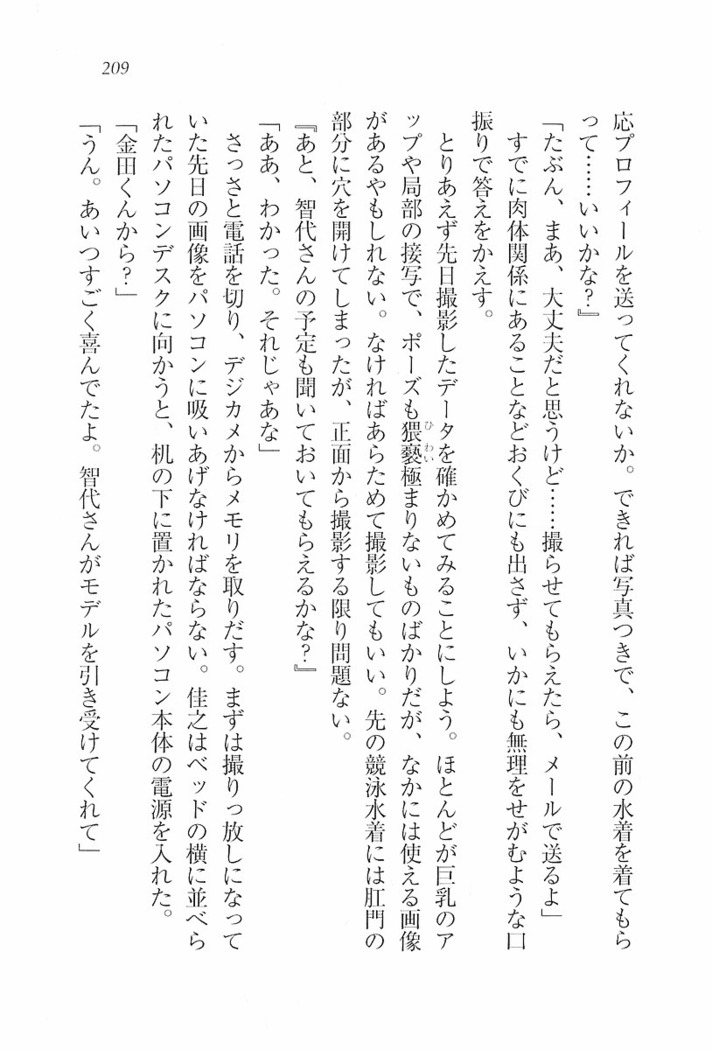 209
応プロフィールを送ってくれないか。できれば写真つきで、この前の水着を着てもら
って……いいかな？』
「たぶん、まあ、大丈夫だと思うけど……撮らせてもらえたら、メールで送るよ」
すでに肉体関係にあることなどおくびにも出さず、いかにも無理をせがむような口
振りで答えをかえす。
とりあえず先日撮影したデータを確かめてみることにしよう。ほとんどが巨乳のア
ップや局部の接写で、ポーズも猥褻極まりないものばかりだが、なかには使える画像
があるやもしれない。なければあらためて撮影してもいい。先の競泳水着には肛門の
部分に穴を開けてしまったが、正面から撮影する限り問題ない。
『あと、智代さんの予定も聞いておいてもらえるかな？』
「ああ、わかった。それじゃあな」
さっさと電話を切り、デジカメからメモリを取りだす。まずは撮りっ放しになって
いた先日の画像をパソコンに吸いあげなければならない。佳之はベッドの横に並べら
れたパソコンデスクに向かうと、机の下に置かれたパソコン本体の電源を入れた。
「金田くんから？」
「うん。あいつすごく喜んでたよ。智代さんがモデルを引き受けてくれて」